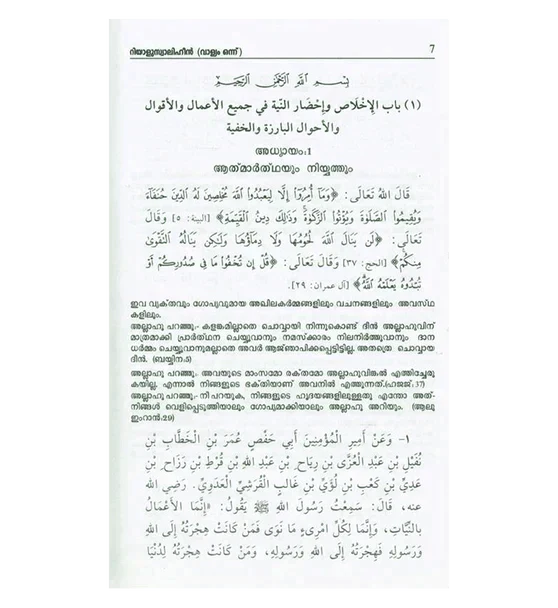 റിയാളുസ്വാലിഹീൻ (വാള്യം ഒന്ന്) 7
بِسْمِ اللهِ الرَّحْمٰنِ الرَّحِيْمِ
(١) باب الإخلاص وإحضار النية في جميع الأعمال والأقوال
والأحوال البارزة والخفية
അധ്യായം:1
ആത്മാർത്ഥയും നിയ്യത്തും
قَالَ اللهُ تَعَالَى: ﴿وَمَا أُمِرُوٓا إِلَّا لِيَعْبُدُوا اللَّهَ مُخْلِصِينَ لَهُ الدِّينَ حُنَفَاءَ
وَيُقِيمُوا الصَّلَوٰةَ وَيُؤْتُوا الزَّكَوٰةَ وَذَٰلِكَ دِينُ الْقَيِّمَةِ﴾ [البينة: ٥] وَقَالَ
تَعَالَى: ﴿لَن يَنَالَ اللَّهَ لُحُومُهَا وَلَا دِمَاؤُهَا وَلَٰكِن يَنَالُهُ التَّقْوَىٰ
مِنكُمْ﴾ [الحج: ٣٧] وَقَالَ تَعَالَى: ﴿قُلْ إِن تُخْفُوا مَا فِي صُدُورِكُمْ أَوْ
تُبْدُوهُ يَعْلَمْهُ اللَّهُ﴾ [آل عمران: ٢٩].
ഇവ വ്യക്തവും ഗോപ്യവുമായ അഖിലകർമ്മങ്ങളിലും വചനങ്ങളിലും അവസ്ഥ
കളിലും.
അല്ലാഹു പറഞ്ഞു:- കളങ്കമില്ലാതെ ചൊവ്വായി നിന്നുകൊണ്ട് ദീൻ അല്ലാഹുവിന്
മാത്രമാക്കി പ്രാർത്ഥന ചെയ്യുവാനും നമസ്ക്കാരം നിലനിർത്തുവാനും ദാന
ധർമ്മം ചെയ്യുവാനുമല്ലാതെ അവർ ആജ്ഞാപിക്കപ്പെട്ടിട്ടില്ല. അതത്രെ ചൊവ്വായ
ദീൻ. (ബയ്യിന:5)
അല്ലാഹു പറഞ്ഞു: അവയുടെ മാംസമോ രക്തമോ അല്ലാഹുവിങ്കൽ എത്തിച്ചേരു
കയില്ല. എന്നാൽ നിങ്ങളുടെ ഭക്തിയാണ് അവനിൽ എത്തുന്നത്.(ഹജജ്:37)
അല്ലാഹു പറഞ്ഞു:- നീ പറയുക, നിങ്ങളുടെ ഹൃദയങ്ങളിലുള്ളതു എന്തോ അത്-
നിങ്ങൾ വെളിപ്പെടുത്തിയാലും ഗോപ്യമാക്കിയാലും അല്ലാഹു അറിയും. (ആലു
ഇംറാൻ:29)
١- وَعَنْ أَمِيرِ الْمُؤْمِنِينَ أَبِي حَفْصٍ عُمَرَ بْنِ الْخَطَّابِ بْنِ
نُفَيْلِ بْنِ عَبْدِ الْعُزَّى بْنِ رِيَاحِ بْنِ عَبْدِ اللهِ بْنِ قُرْطِ بْنِ رَزَاحِ بْنِ
عَدِيِّ بْنِ كَعْبِ بْنِ لُؤَيِّ بْنِ غَالِبٍ الْقُرَشِيِّ الْعَدَوِيِّ. رَضِيَ اللهُ
عنه، قَالَ: سَمِعْتُ رَسُولَ اللهِ ﷺ يَقُولُ: «إِنَّمَا الْأَعْمَالُ
بِالنِّيَّاتِ، وَإِنَّمَا لِكُلِّ امْرِىءٍ مَا نَوَى فَمَنْ كَانَتْ هِجْرَتُهُ إِلَى اللهِ
وَرَسُولِهِ فَهِجْرَتُهُ إِلَى اللهِ وَرَسُولِهِ، وَمَنْ كَانَتْ هِجْرَتُهُ لِدُنْيَا